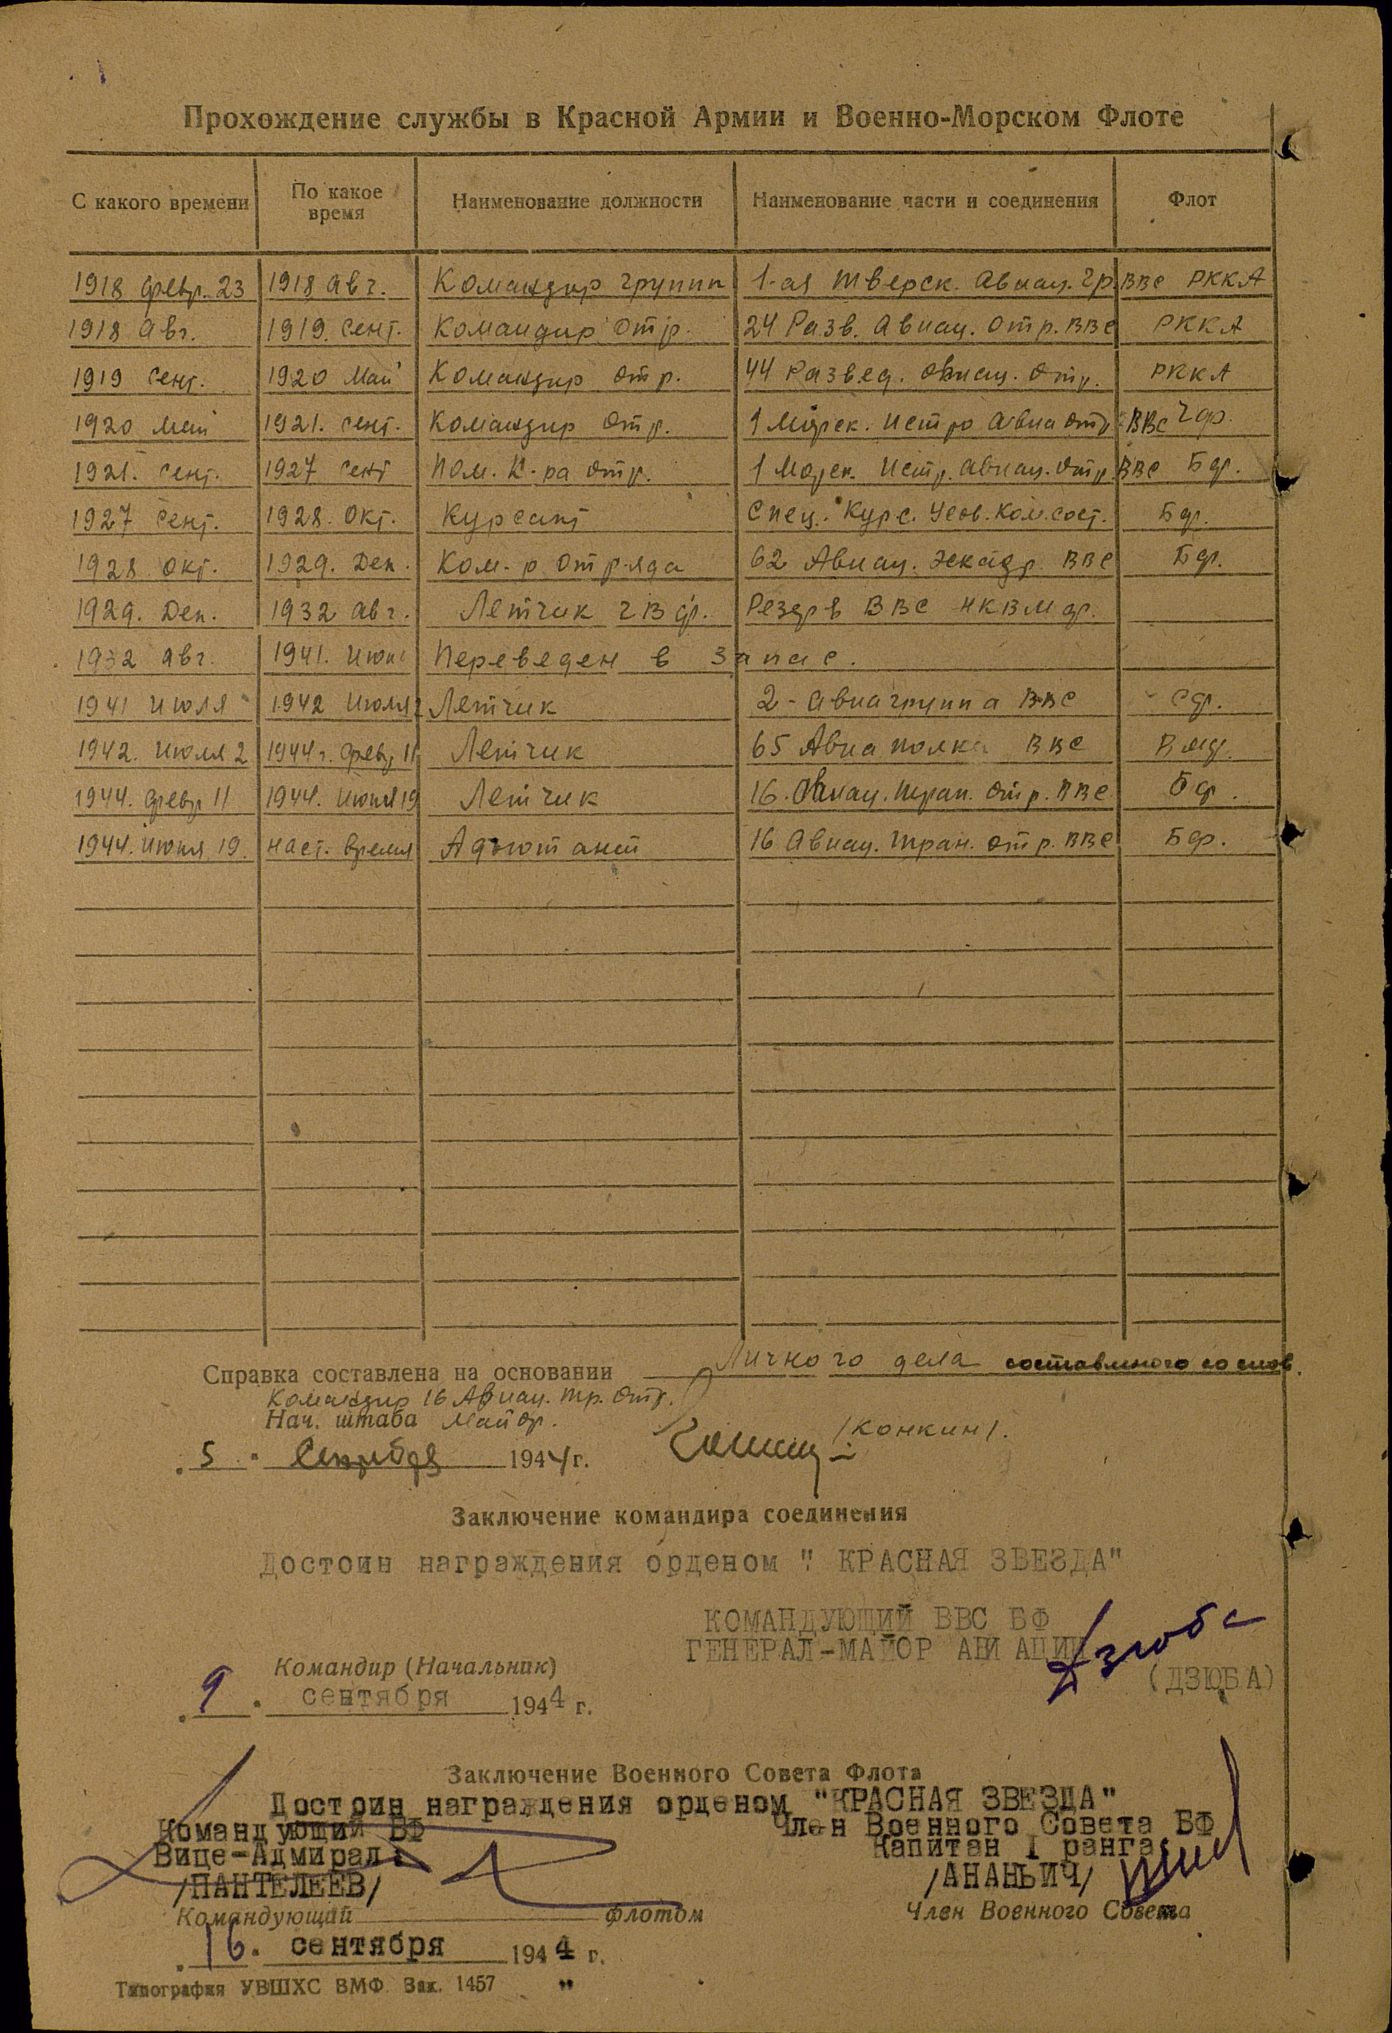 Прохождение службы в Красной Армии и Военно-Морском Флоте
С какого времени По какое время Наименование должности Наименование части и соединения Флот
1918 февр. 23 1918 авг. Командир групп 1-ая тверск. авиац. гр ВВС РККА
1918 авг. 1919. сент. Командир отр. 24 Разв. Авиац. отр. ВВС РККА
1919 сент. 1920 Май Командир отр. 44 Развед. авиац. отр. РККА
1920 Май 1921. сент. Командир отр. 1 Морск. Истр авиа отр ВВС Чф.
1921. сент. 1927 сент Пом. К-ра отр. 1 Морск. Истр. авиац. отр. ВВС Бф.
1927 сент. 1928. Окт. Курсант Спец. Курс. Усов. Ком. сост. Бф.
1928 окт. 1929. Дек. Ком-р отряда 62 Авиац. эскадр ВВС Бф.
1929. Дек. 1932 авг. Летчик ГВФ. Резерв ВВС НКВМФ.
1932 авг. 1941. Июн Переведен в запас.
1941 Июля 1942 Июля 2 Летчик 2-авиагруппа ВВС Сф.
1942. Июля 2 1944 г. февр 11 Летчик 65 Авиа полка ВВС Вмф.
1944. февр 11 1944. Июня 19 Летчик 16. Авиац. тран. отр. ВВС Бф.
1944. июня 19. наст. время Адъютант 16 Авиац. тран. отр. ВВС Бф.
Справка составлена на основании Личного дела
Командир 16 Авиац. тр. отр.
Нач. штаба Майор. /Конкин/.
„5“ Сентября 1944 г.
Заключение командира соединения
Достоин награждения орденом " КРАСНАЯ ЗВЕЗДА"
КОМАНДУЮЩИЙ ВВС БФ
ГЕНЕРАЛ-МАЙОР АВИАЦИИ Дзюба
Командир (Начальник) (ДЗЮБА)
„9“ сентября 1944 г.
Заключение Военного Совета Флота
Достоин награждения орденом "КРАСНАЯ ЗВЕЗДА"
Командующий БФ Член Военного Совета БФ
Вице-Адмирал Капитан 1 ранга
/ПАНТЕЛЕЕВ/ /АНАНЬИЧ/
Командующий флотом Член Военного Совета
„16“ сентября 1944 г.
Типография УВШХС ВМФ Зак. 1457 "